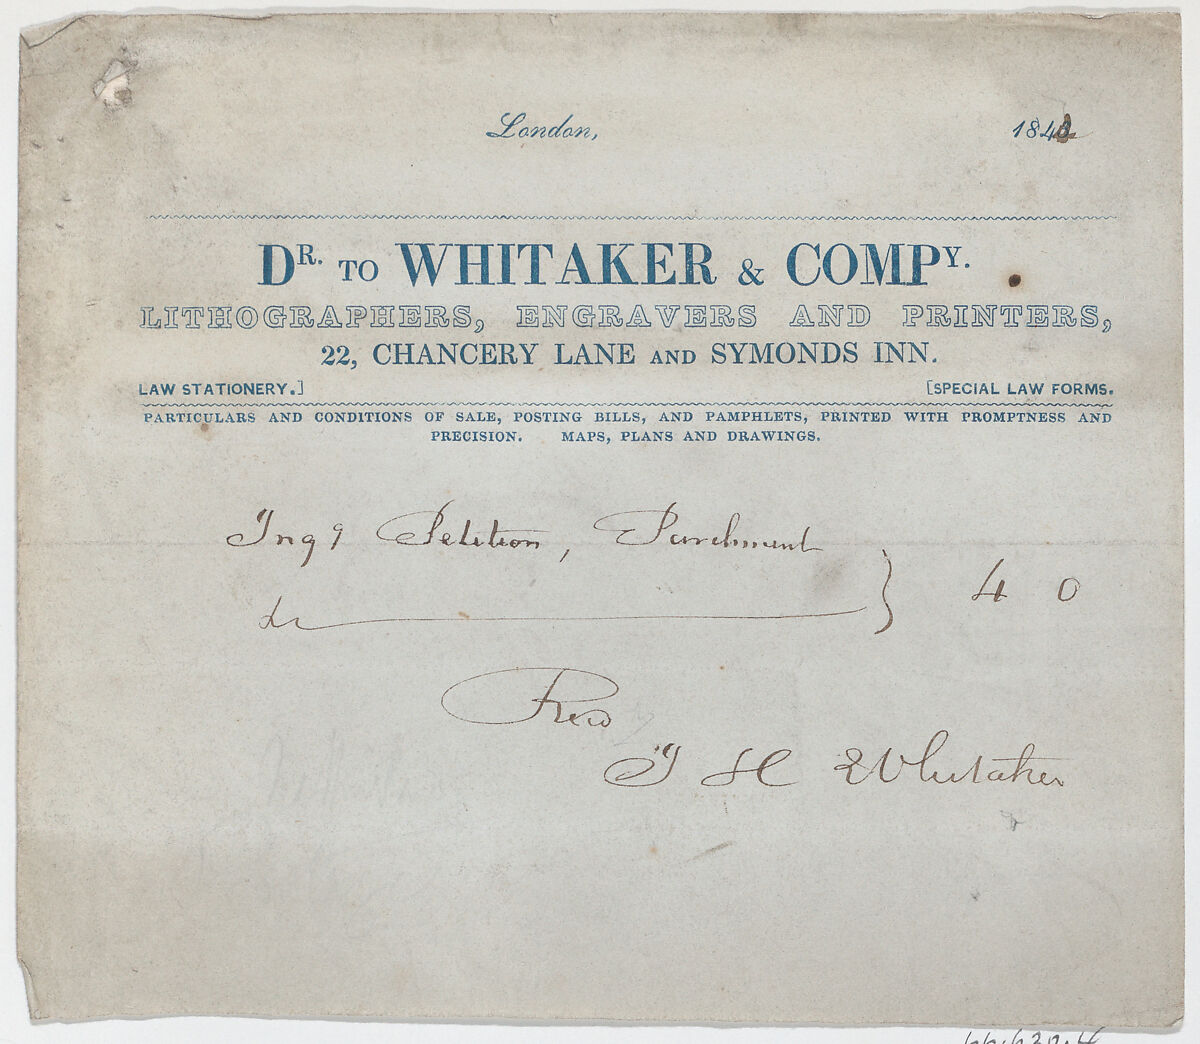 London, 184
DR. TO WHITAKER & COMPY.
LITHOGRAPHERS, ENGRAVERS AND PRINTERS,
22, CHANCERY LANE AND SYMONDS INN.
LAW STATIONERY.] [SPECIAL LAW FORMS.
PARTICULARS AND CONDITIONS OF SALE, POSTING BILLS, AND PAMPHLETS, PRINTED WITH PROMPTNESS AND
PRECISION. MAPS, PLANS AND DRAWINGS.
Ing9 Petition, Parchment
&c } 4 0
Recd
T H Whitaker